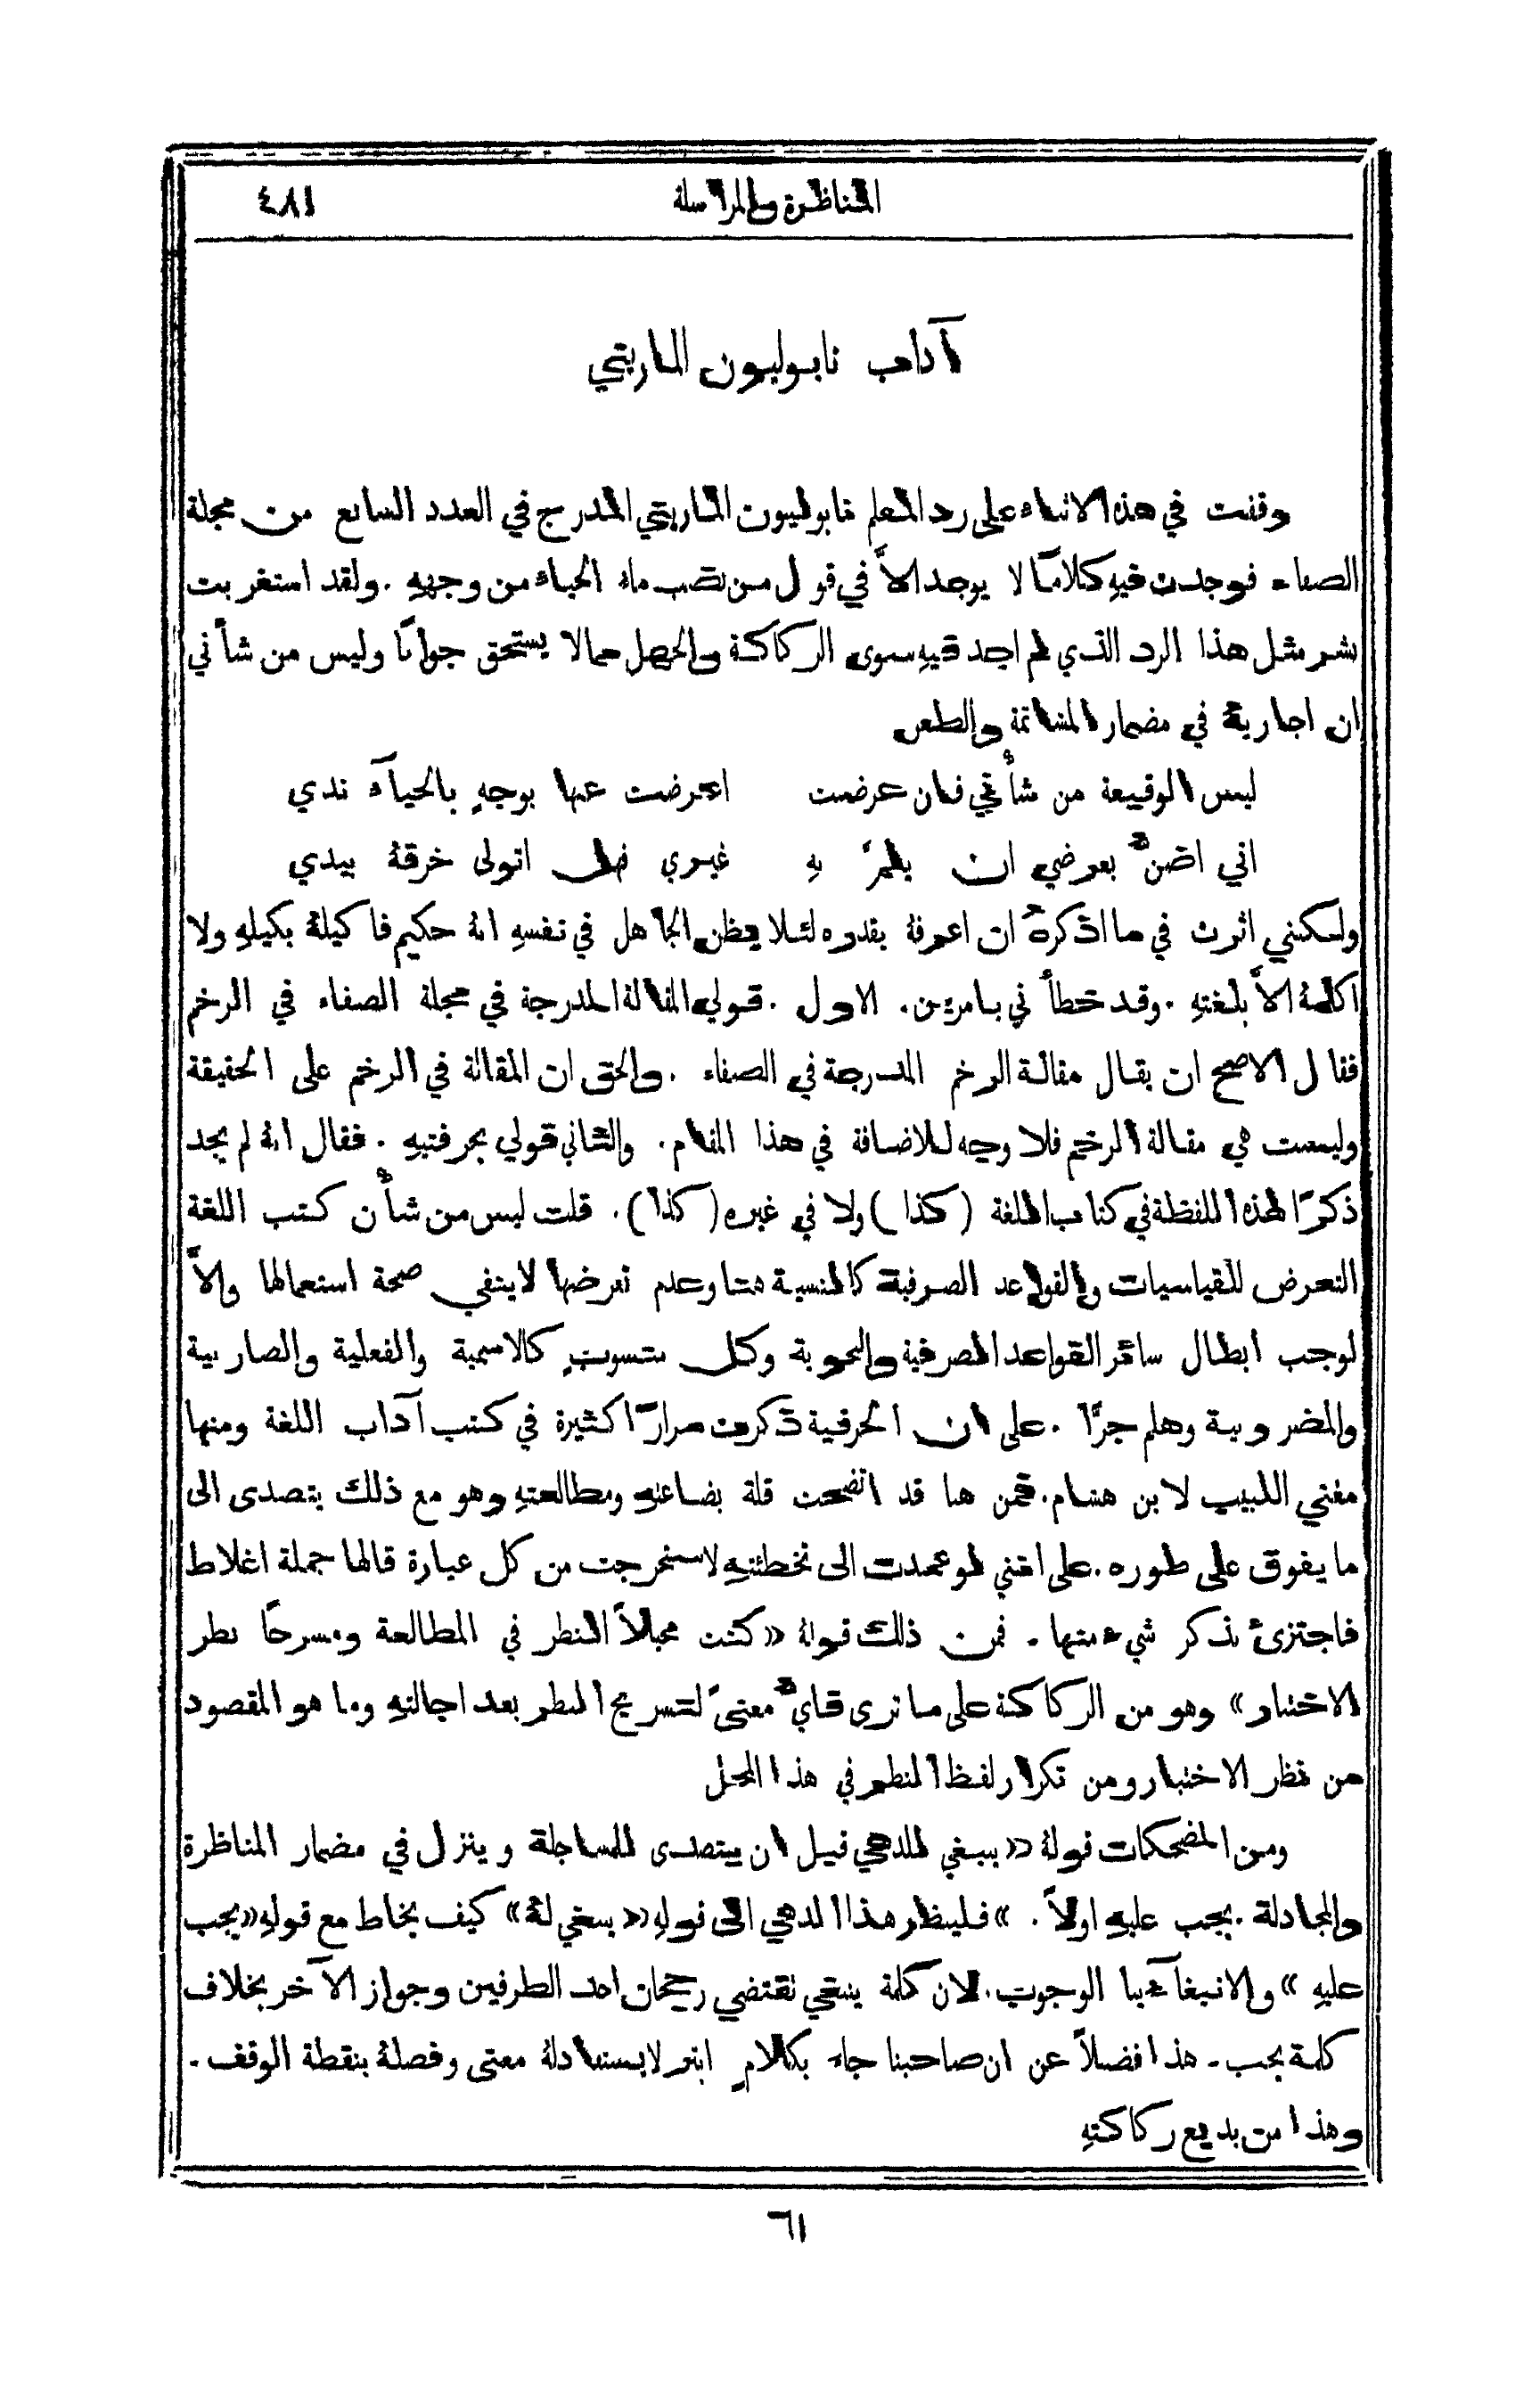 المناظرة والمراسلة
٤٨١
آداب نابوليون الماريني
وقفت في هذه الاثناء على رد المعلم نابوليون الماريني المدرج في العدد السابع من مجلة
الصفاء فوجدت فيهِ كلامًا لا يوجد الاَّ في قول من نضب ماء الحياء من وجههِ . ولقد استغربت
نشر مثل هذا الرد الذي لم اجد فيهِ سوى الركاكة والجهل مما لا يستحق جوابًا وليس من شأني
ان اجاريهُ في مضمار المشاتمة والطعن
ليس الوقيعة من شأني فان عرضت اعرضت عنها بوجهٍ بالحيآء ندي
اني اضنُّ بعرضي ان يلمَّ بهِ غيري فهل اتولى خرقهُ بيدي
ولكنني اثرت في ما اذكرهُ ان اعرفهُ بقدره لئلا يظن الجاهل في نفسهِ انهُ حكيم فاكيلهُ بكيلهِ ولا
اكلمهُ الاَّ بلغتهِ . وقد خطأ ني بامرين . الاول . قولي المقالة المدرجة في مجلة الصفاء في الرخم
فقال الاصح ان يقال مقالة الرخم المدرجة في الصفاء . والحق ان المقالة في الرخم على الحقيقة
وليست هي مقالة الرخم فلا وجه للاضافة في هذا المقام . والثاني قولي بحرفتيهِ . فقال انهُ لم يجد
ذكرًا لهذه اللفظة في كتاب اللغة (كذا) ولا في غيره (كذا) . قلت ليس من شأن كتب اللغة
التعرض للقياسيات والقواعد الصرفية كالنسبة هنا وعدم تعرضها لا ينفي صحة استعمالها والاَّ
لوجب ابطال سائر القواعد الصرفية والنحوية وكل منسوبٍ كالاسمية والفعلية والضاربية
والمضروبية وهلم جرًّا . على ان الحرفية ذكرت مرارًا كثيرة في كتب آداب اللغة ومنها
مغني اللبيب لابن هشام . فمن هنا قد اتضحت قلة بضاعتهِ ومطالعتهِ وهو مع ذلك يتصدى الى
ما يفوق على طوره . على انني لو عمدت الى تخطئتهِ لاستخرجت من كل عبارة قالها جملة اغلاط
فاجتزئ بذكر شيء منها . فمن ذلك قولهُ «كنت مجيلاً النظر في المطالعة ومسرحًا نظر
الاختبار» وهو من الركاكة على ما ترى فايُّ معنىً لتسريح النظر بعد اجالتهِ وما هو المقصود
من نظر الاختبار ومن تكرار لفظ النظر في هذا المحل
ومن المضحكات قولهُ «ينبغي للمدعي قبل ان يتصدى للمساجلة وينزل في مضمار المناظرة
والمجادلة . يجب عليهِ اولاً . » فلينظر هذا المدعي الى قولهِ «ينبغي لهُ» كيف يخاط مع قولهِ «يجب
عليهِ» والانبغآء يبا الوجوب . لان كلمة ينبغي تقتضي رجحان احد الطرفين وجواز الآخر بخلاف
كلمة يجب . هذا فضلاً عن ان صاحبنا جاء بكلامٍ ابتر لا يستعادلهُ معنى وفصلهُ بنقطة الوقف .
وهذا من بديع ركاكتهِ
٦١